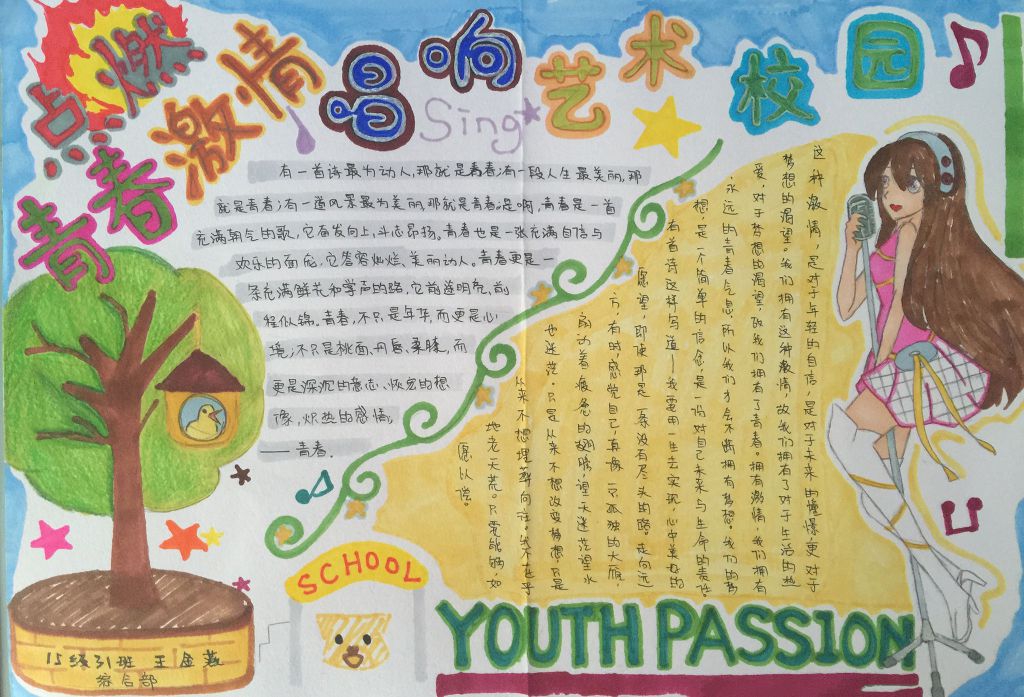 点燃
青春激情
唱响
艺术校园
Sing
有一首诗最为动人,那就是青春;有一段人生最美丽,那
就是青春;有一道风景最为美丽,那就是青春。是啊,青春是一首
充满朝气的歌,它奋发向上,斗志昂扬。青春也是一张充满自信与
欢乐的面庞,它笑容灿烂、美丽动人。青春更是一
条充满鲜花和掌声的路,它前途明亮,前
程似锦。青春,不只是年华,而更是心
境;不只是桃面、丹唇、柔膝,而
更是深沉的意志、恢宏的想
像,炽热的感情,
——青春.
这种激情,是对于年轻的自信,是对于未来的憧憬更对于
梦想的渴望。我们拥有这种激情,故我们拥有了对于生活的热
爱,对于梦想的渴望,故我们拥有了青春。拥有激情,我们拥有
永远的青春气息,所以我们才会不断拥有梦想。我们的梦
想,是一个简单的信念,是一份对自己未来与生命的责任。
有首诗这样写道——我需用一生去实现,心中美好的
愿望,即使那是一条没有尽头的路。走向远
方,有时,感觉自己,真像一只孤独的大雁,
扇动着疲惫的翅膀,望天迷茫望水
也迷茫。只是从来不想改变梦想,只是
从来不想埋葬向往。我不在乎
地老天荒。只需能够,如
愿以偿。
SCHOOL
YOUTH PASSION
15级31班 王金燕
综合部